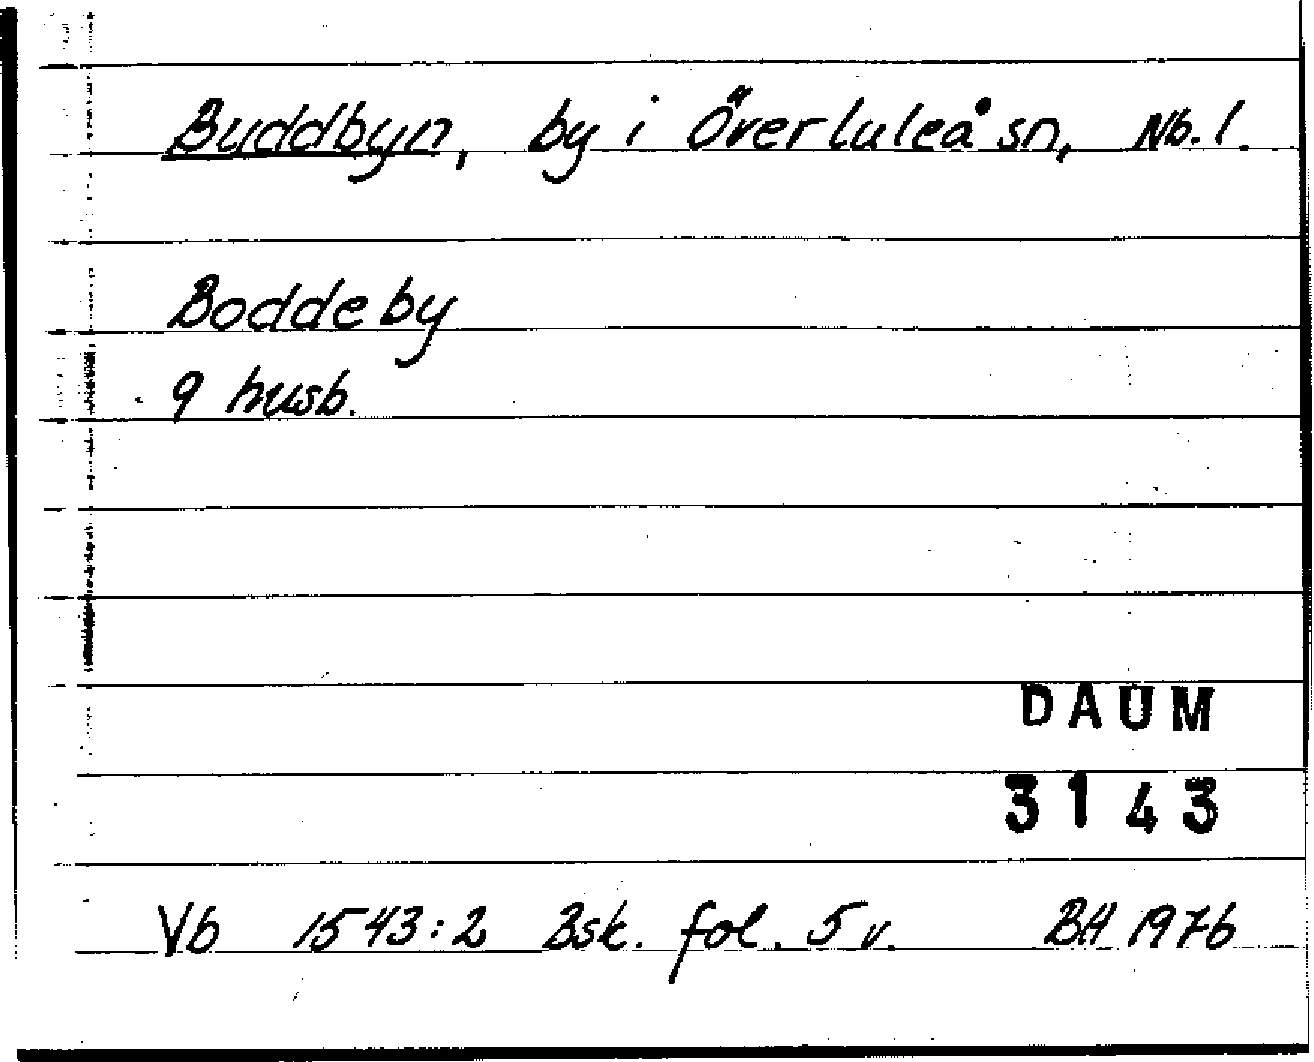 Buddbyn, by i Överluleå sn, Nb. l.
Boddeby
9 husb.
DAUM
3143
Vb 1543:2 Bsk. fol. 5 v. BH 1976